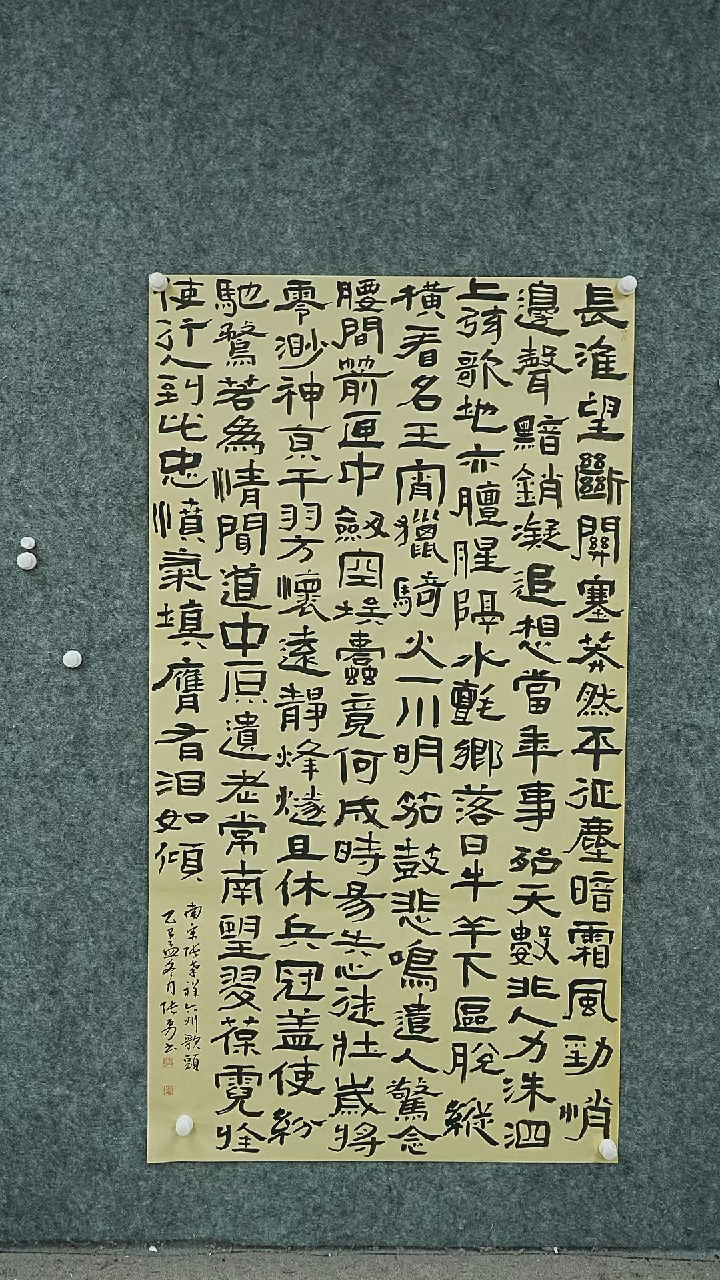 長淮望斷關塞莽然平征塵暗霜風勁悄
邊聲黯銷凝追想當年事殆天數非人力洙泗
上弦歌地亦膻腥隔水氈鄉落日牛羊下區脫縱
橫看名王宵獵騎火一川明笳鼓悲鳴遣人驚念
腰間箭匣中劍空埃蠹竟何成時易失心徒壯歲將
零渺神京干羽方懷遠靜烽燧且休兵冠蓋使紛
馳騖若為情聞道中原遺老常南望翠葆霓旌
使行人到此忠憤氣填膺有泪如傾
南宋張孝祥六州歌頭
乙巳孟冬月張勇書